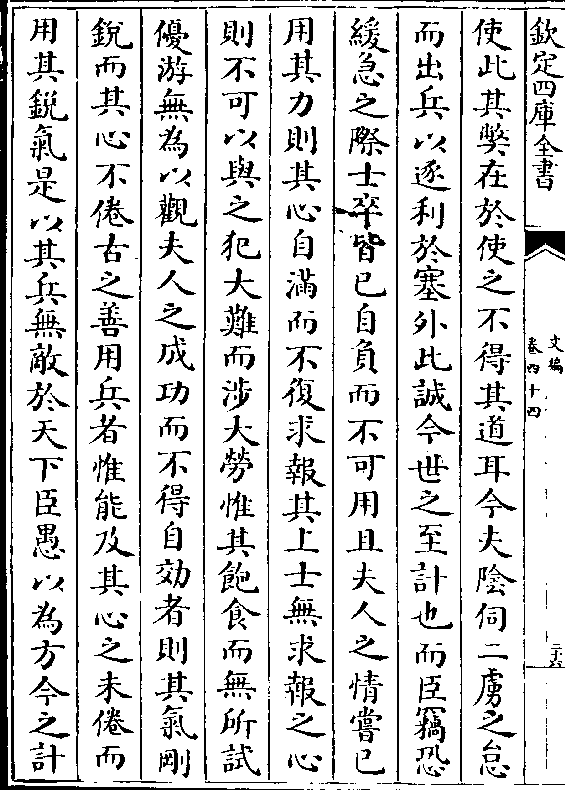 欽定四庫全書
文編
卷四十四
使此其弊在於使之不得其道耳今夫陰伺二虜之怠
而出兵以逐利於塞外此誠今世之至計也而臣竊恐
緩急之際士卒皆已自負而不可用且夫人之情嘗已
用其力則其心自滿而不復求報其上士無求報之心
則不可以與之犯大難而涉大勞惟其飽食而無所試
優游無為以觀夫人之成功而不得自効者則其氣剛
銳而其心不倦古之善用兵者惟能及其心之未倦而
用其鋭氣是以其兵無敵於天下臣愚以為方今之計